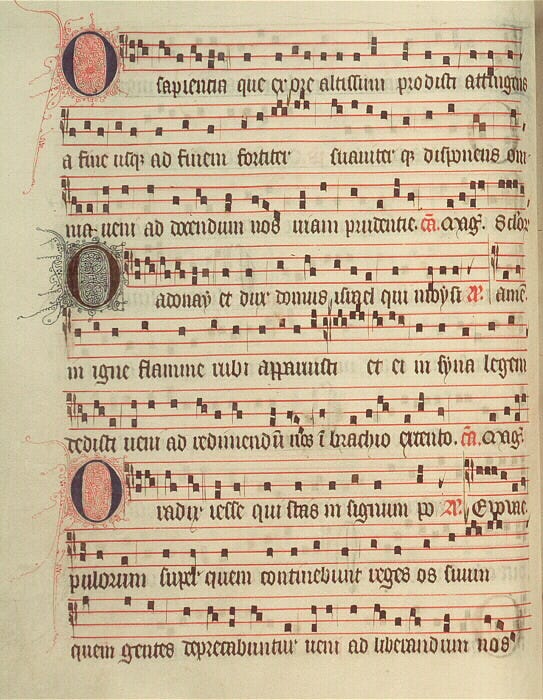 O sapientia que ex ore altissimi prodisti attingens
a fine usq; ad finem fortiter suauiter q; disponens om
nia ueni ad docendum nos uiam prudentie. cā. Mag.
O adonay et dux domus israel qui moysi amē.
in igne flamme rubi apparuisti et ei in syna legem
dedisti ueni ad redimendū nos ī brachio extento. cā. Mag.
O radix iesse qui stas in signum po
pulorum super quem continebunt reges os suum
quem gentes deprecabuntur ueni ad liberandum nos